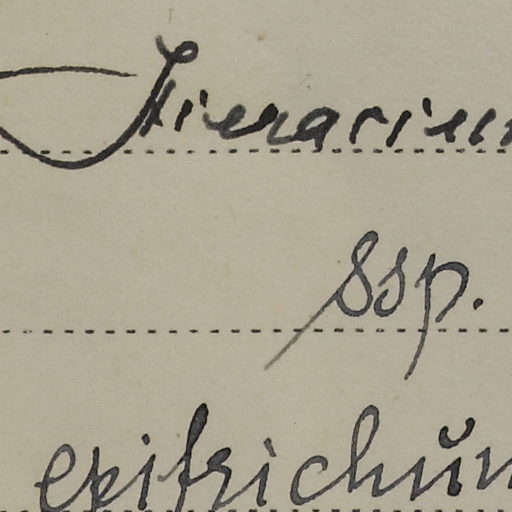 Hieracium
ssp.
epitrichŭm